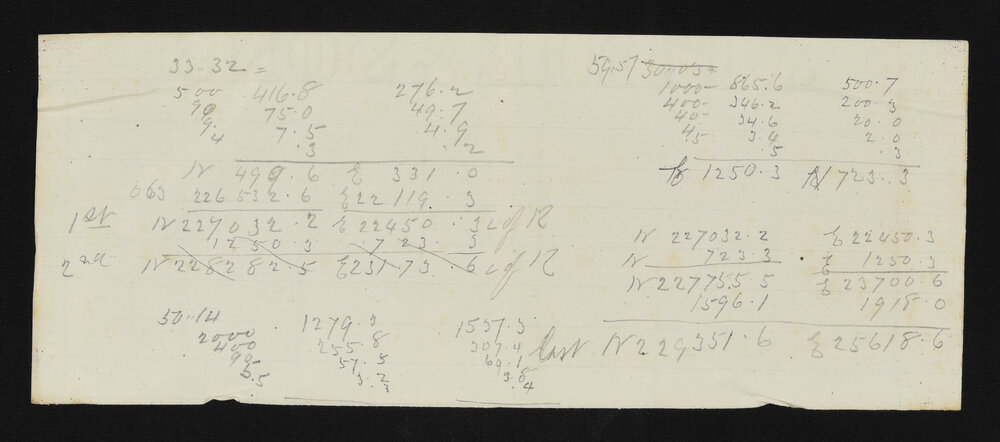 33..32 =
500 416.8 276.2
90 75.0 49.7
9 7.5 4.9
.4 .3 .2
N 499.6 E 331.0
063 226532.6 E 22119.3
1st N 227032.2 E 22450.3 C of R
1250.3 723.3
2nd N 228282.5 E 23173.6 C of R
50..14
2000 1279.3 1537.3
400 255.8 307.4
90 57.5 69.1
5.5 3.2 3.8
.3 .4
59.57 30..05 =
1000 865.6 500.7
400 346.2 200.3
40 34.6 20.0
4.5 3.4 2.0
.5 .3
E 1250.3 N 723.3
N 227032.2 E 22450.3
N 723.3 E 1250.3
N 227755.5 E 23700.6
1596.1 1918.0
Last N 229351.6 E 25618.6